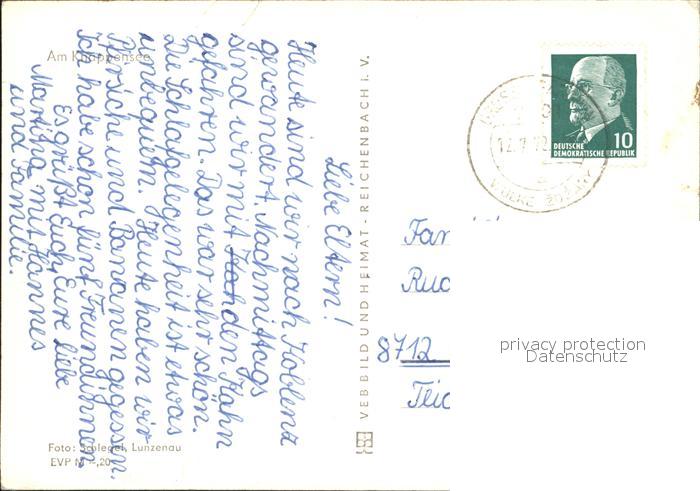 Am Knappensee
Liebe Eltern!
Heute sind wir nach Koblenz
gewandert. Nachmittags
sind wir mit den Kahn
gefahren. Das war sehr schön.
Die Schlafgelegenheit ist etwas
unbequem. Heute haben wir
Pfirsiche und Bananen gegessen.
Ich habe schon fünf Freundinnen.
Es grüßt Euch, Eure liebe
Martina mit Hannes
und Familie.
Foto: Schlegel, Lunzenau
EVP M -,20
VEB BILD UND HEIMAT · REICHENBACH I. V.
DEUTSCHE
DEMOKRATISCHE REPUBLIK
10
12.7.72
Fam
Rud
8712
privacy protection
Datenschutz